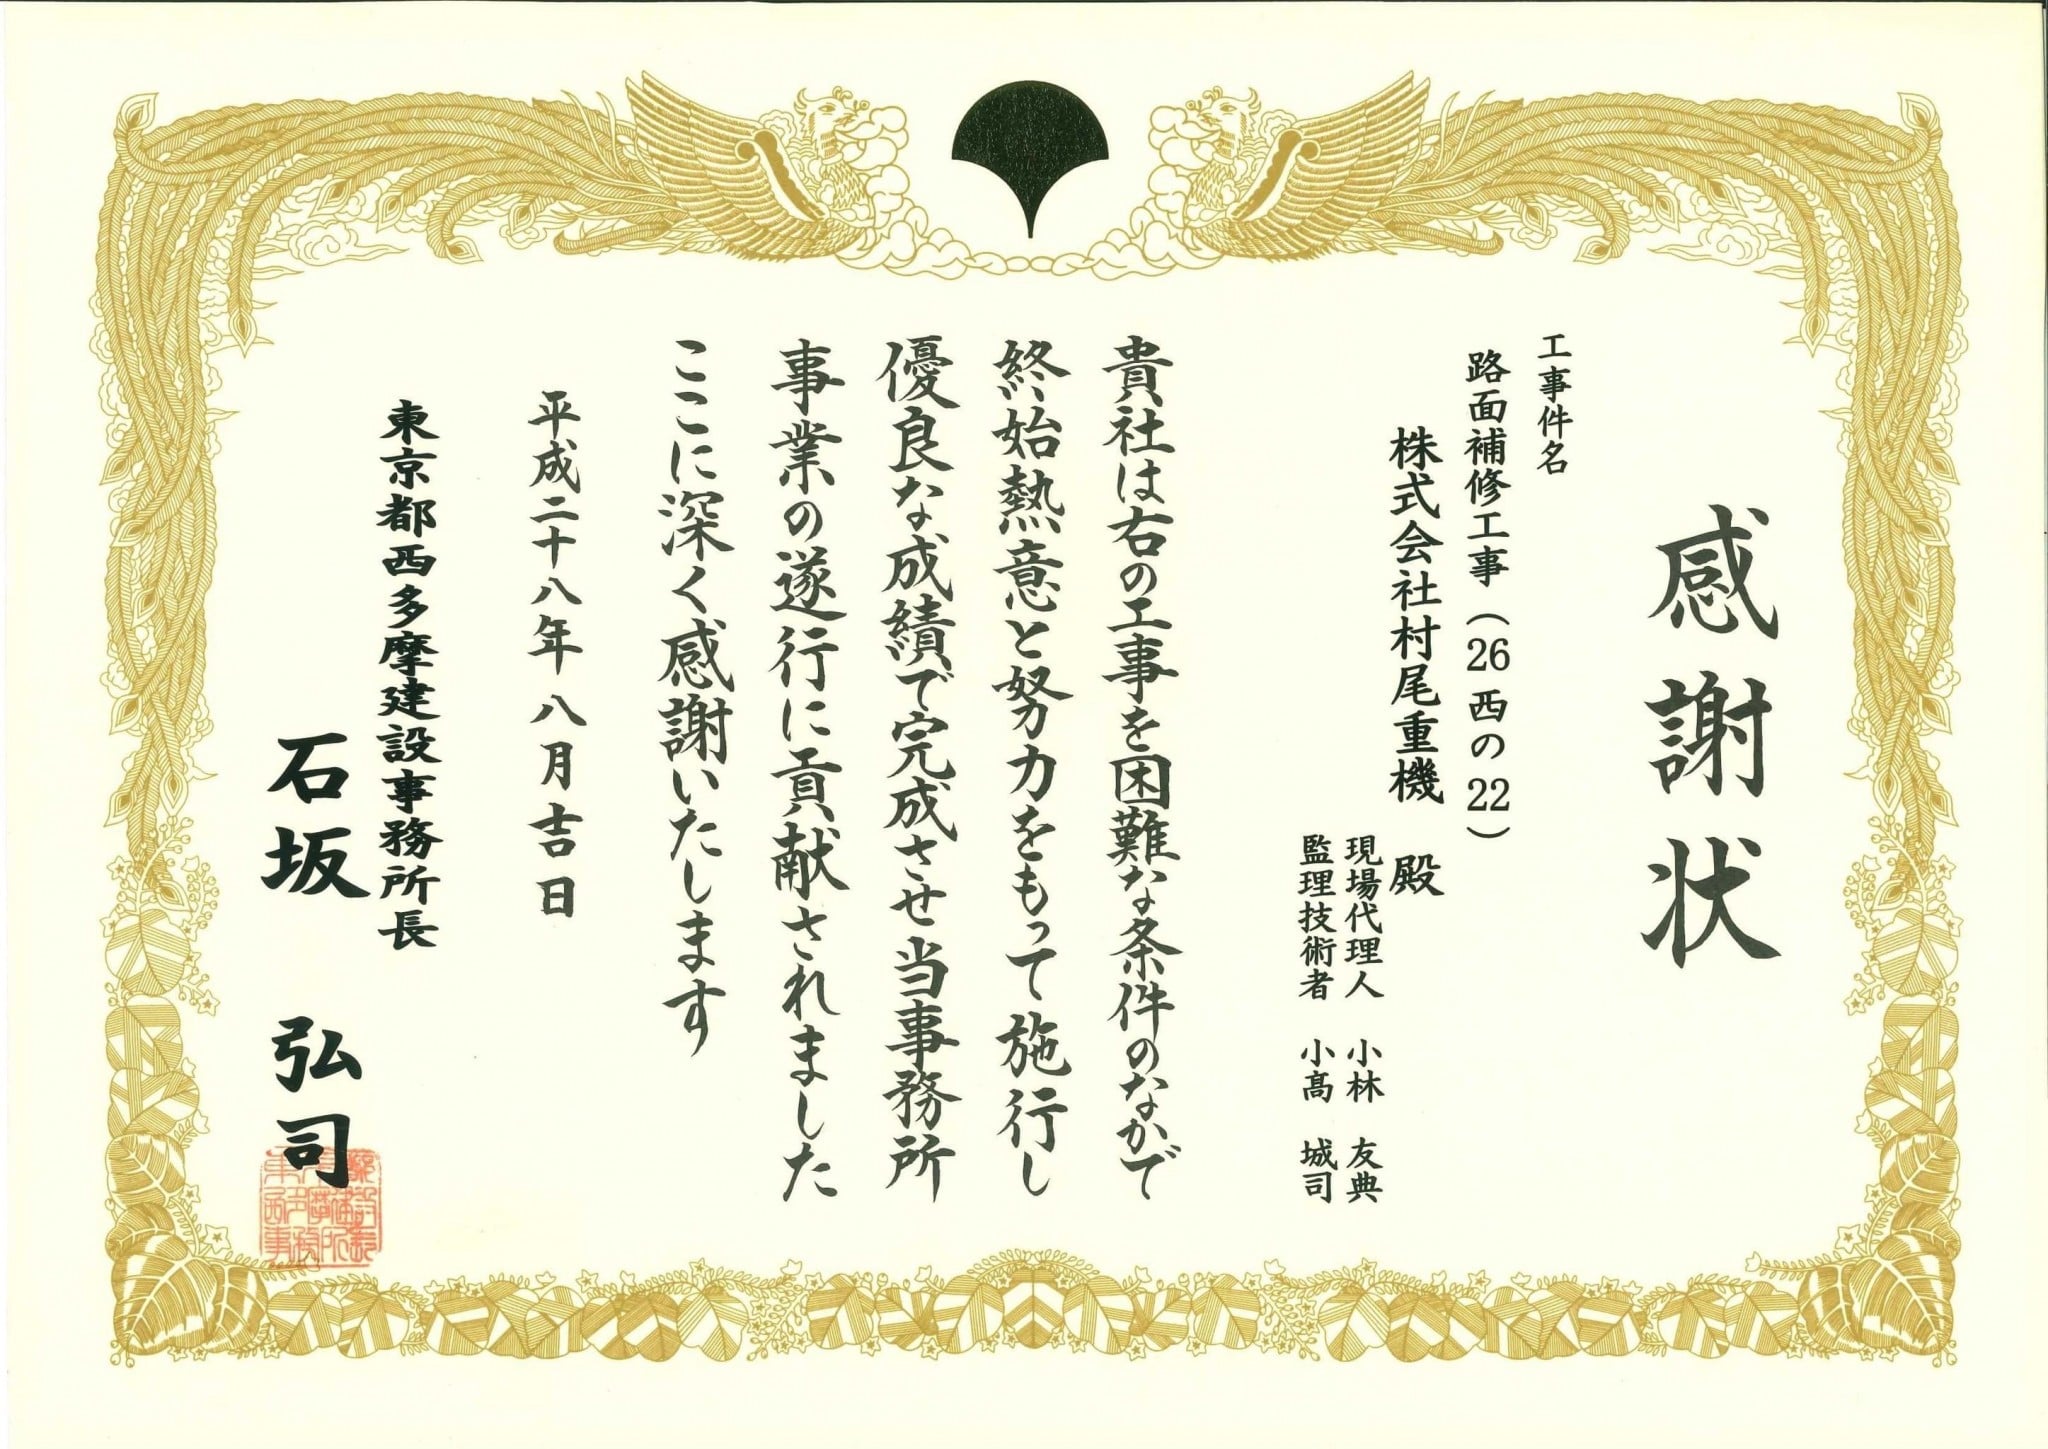 感謝状
工事件名
路面補修工事（26西の22）
株式会社村尾重機 殿
現場代理人 小林 友典
監理技術者 小髙 城司
貴社は右の工事を困難な条件のなかで
終始熱意と努力をもって施行し
優良な成績で完成させ当事務所
事業の遂行に貢献されました
ここに深く感謝いたします
平成二十八年八月吉日
東京都西多摩建設事務所長
石坂 弘司